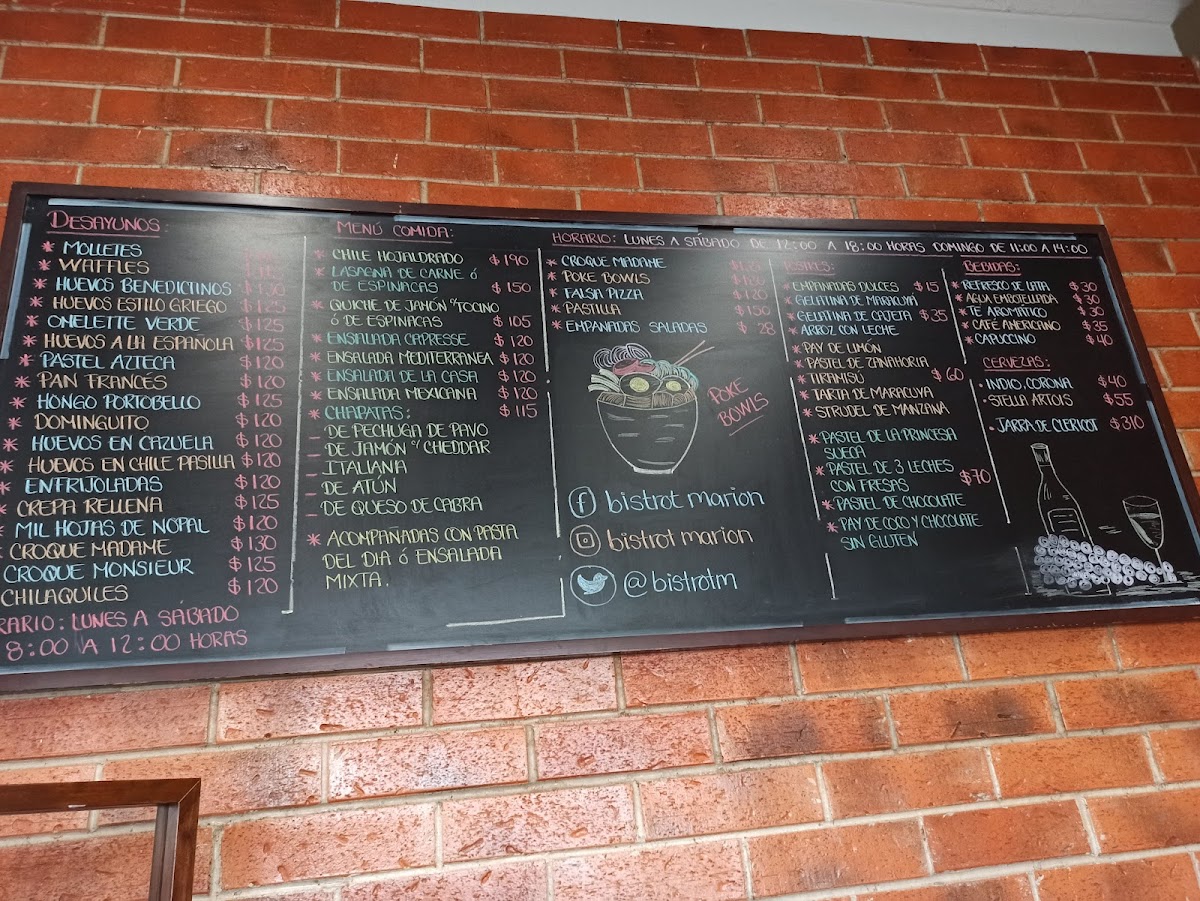 DESAYUNOS:
* MOLLETES
* WAFFLES
* HUEVOS BENEDICTINOS $130
* HUEVOS ESTILO GRIEGO $125
* OMELETTE VERDE $125
* HUEVOS A LA ESPAÑOLA $125
* PASTEL AZTECA $120
* PAN FRANCÉS $120
* HONGO PORTOBELLO $125
* DOMINGUITO $120
* HUEVOS EN CAZUELA $120
* HUEVOS EN CHILE PASILLA $120
* ENFRIJOLADAS $120
* CREPA RELLENA $125
* MIL HOJAS DE NOPAL $120
* CROQUE MADAME $130
CROQUE MONSIEUR $125
CHILAQUILES $120
RARIO: LUNES A SÁBADO
8:00 A 12:00 HORAS
MENÚ COMIDA:
* CHILE HOJALDRADO $190
* LASAGNA DE CARNE Ó
DE ESPINACAS $150
* QUICHE DE JAMÓN C/TOCINO
Ó DE ESPINACAS $105
* ENSALADA CAPRESSE $120
* ENSALADA MEDITERRANEA $120
* ENSALADA DE LA CASA $120
* ENSALADA MEXICANA $120
* CHAPATAS: $115
- DE PECHUGA DE PAVO
- DE JAMÓN C/ CHEDDAR
- ITALIANA
- DE ATÚN
- DE QUESO DE CABRA
* ACOMPAÑADAS CON PASTA
DEL DIA Ó ENSALADA
MIXTA.
HORARIO: LUNES A SÁBADO DE 12:00 A 18:00 HORAS DOMINGO DE 11:00 A 14:00
* CROQUE MADAME
* POKE BOWLS
* FALSA PIZZA $120
* PASTILLA $150
* EMPANADAS SALADAS $28
POKE
BOWLS
f bistrot marion
bistrot marion
@bistrotm
* EMPANADAS DULCES $15
* GELATINA DE MARACUYÁ
* GELATINA DE CAJETA $35
* ARROZ CON LECHE
* PAY DE LIMÓN
* PASTEL DE ZANAHORIA
* TIRAMISÚ $60
* TARTA DE MARACUYA
* STRUDEL DE MANZANA
* PASTEL DE LA PRINCESA
SUECA
* PASTEL DE 3 LECHES
CON FRESAS $70
* PASTEL DE CHOCOLATE
* PAY DE COCO Y CHOCOLATE
SIN GLUTEN
BEBIDAS:
* REFRESCO DE LATA $30
* AGUA EMBOTELLADA $30
* TE AROMÁTICO $30
* CAFÉ AMERICANO $35
* CAPUCCINO $40
CERVEZAS:
• INDIO, CORONA $40
• STELLA ARTOIS $55
• JARRA DE CLERICOT $310